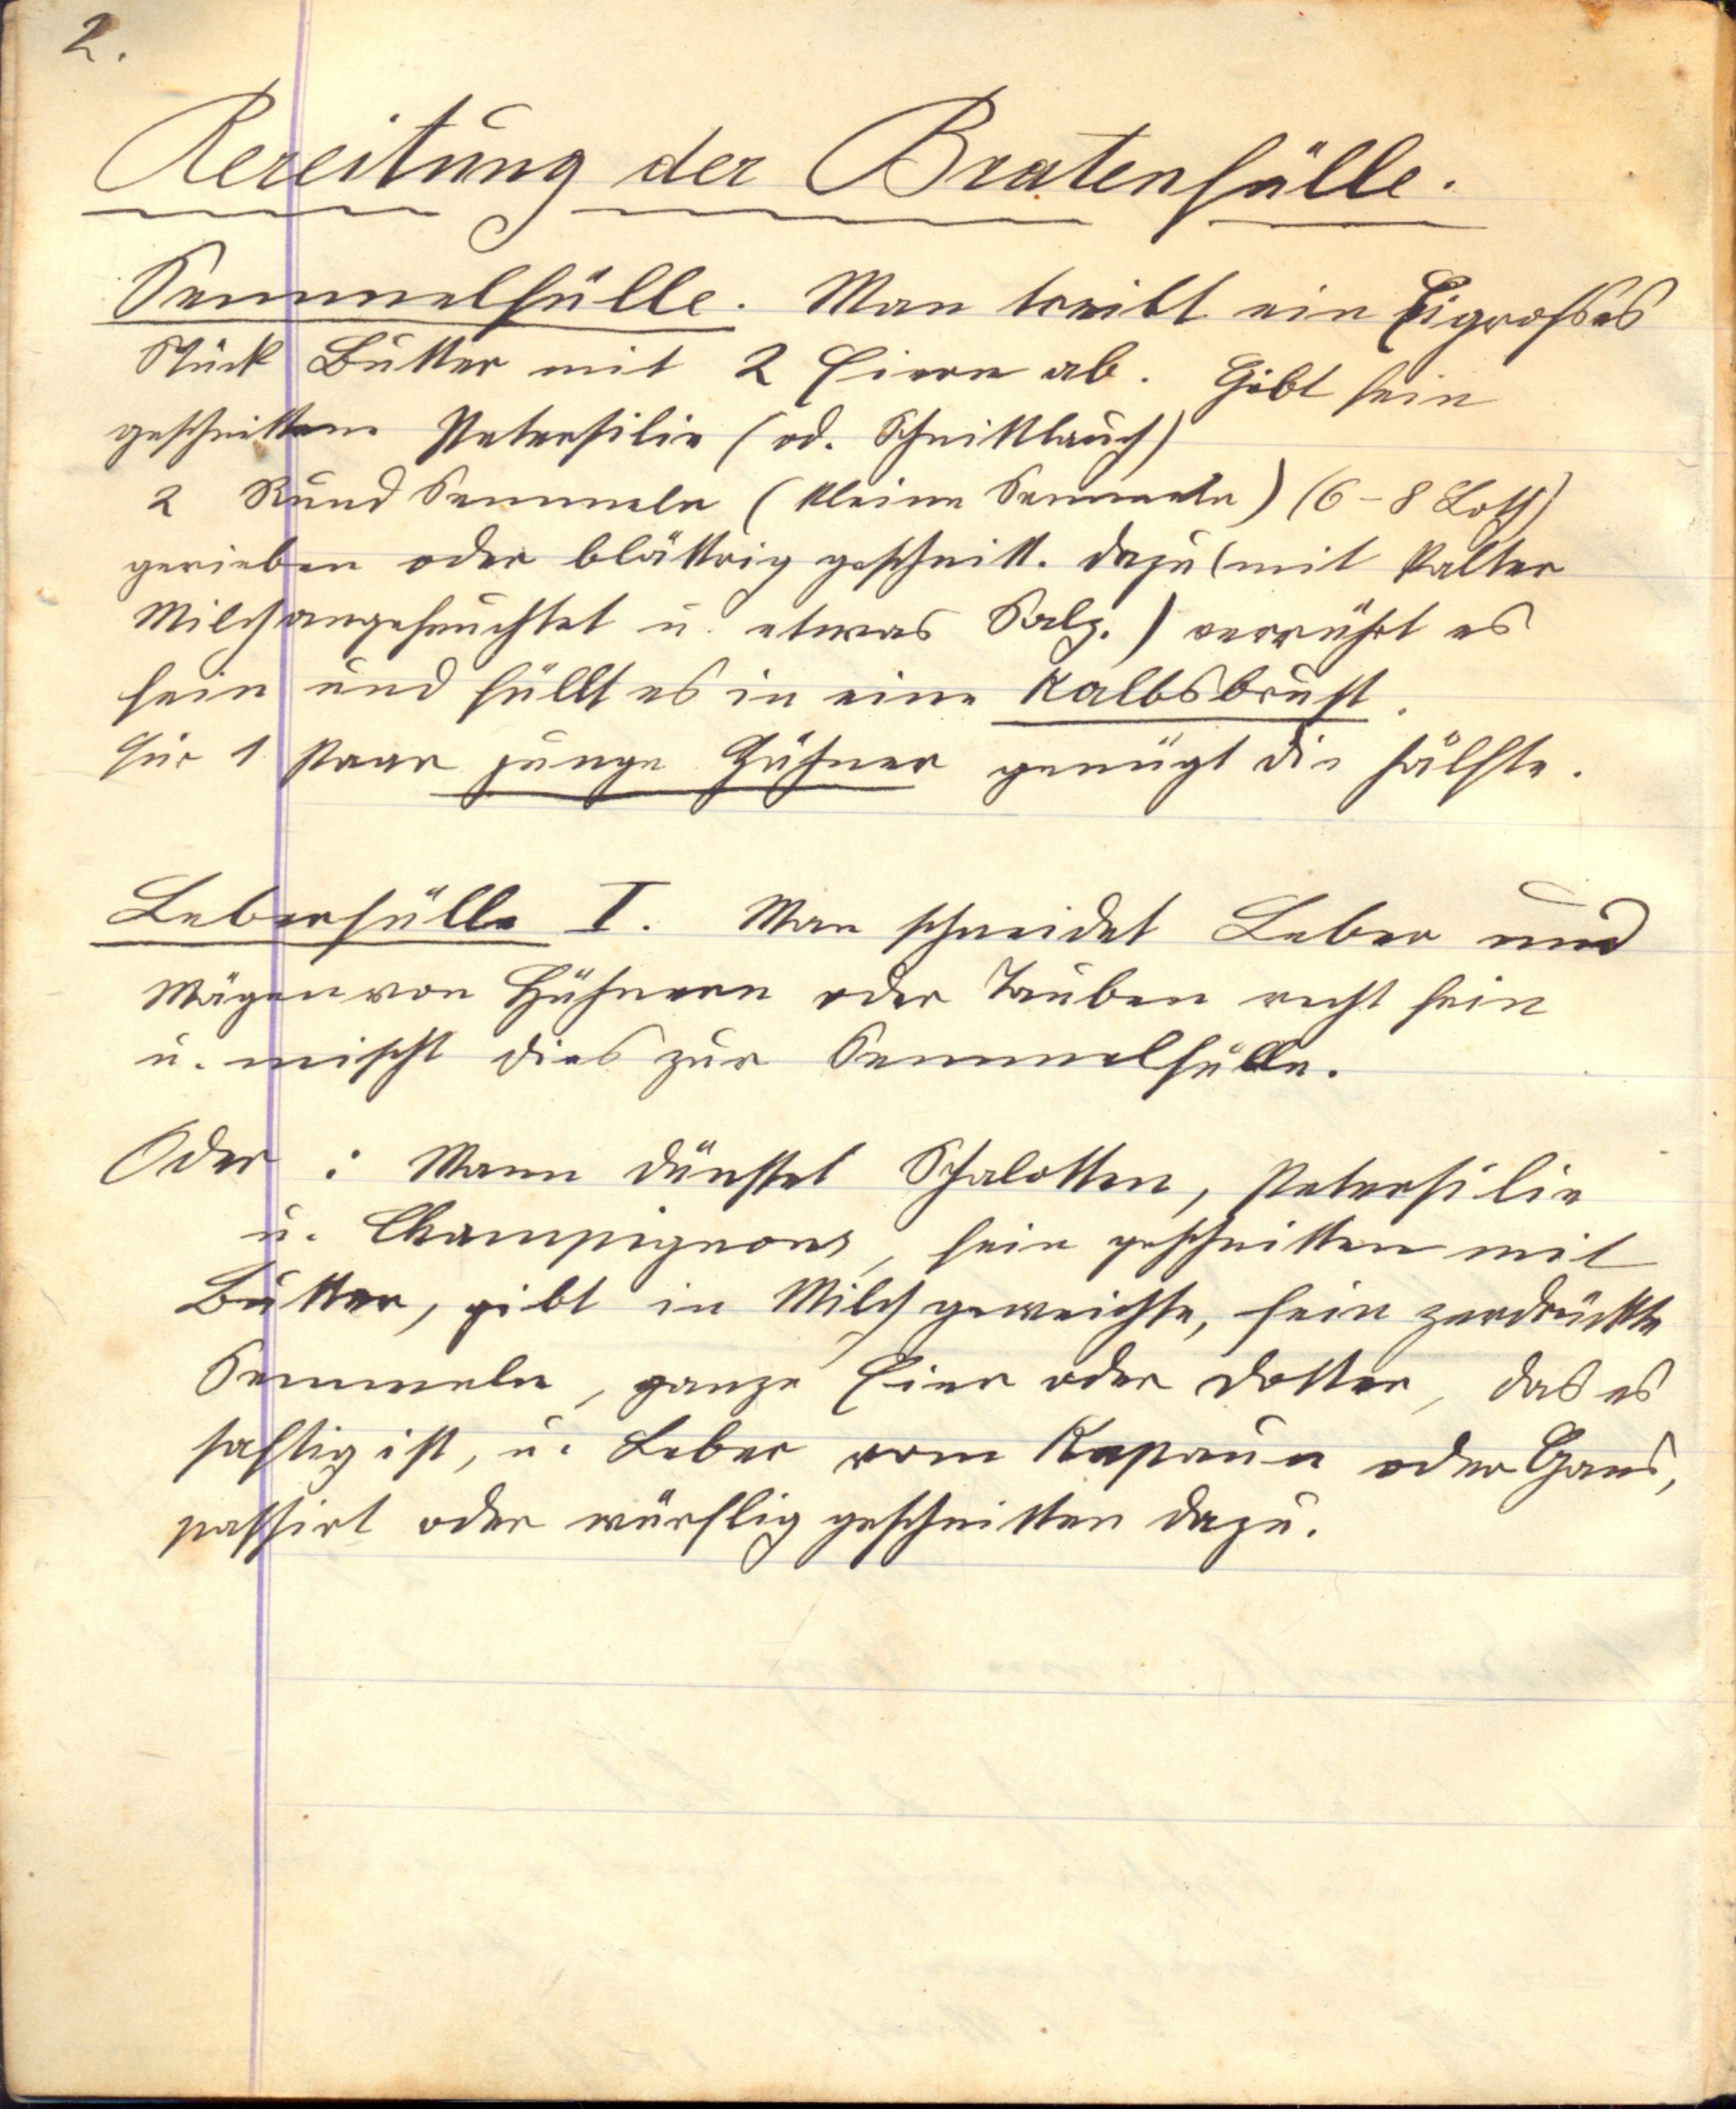 2.
Bereitung der Bratenfülle.
Semmelfülle. Man treibt ein Eigrosses
Stück Butter mit 2 Eiern ab. Gibt fein
geschnittene Petersilie (od. Schnittlauch)
2 Rund Semmeln (kleine Semmeln) (6-8 Loth)
gerieben oder blättrig geschnitt. dazu (mit kalter
Milch angefeuchtet u. etwas Salz.) verrührt es
fein und füllt es in eine Kalbsbrust.
Für 1 Paar junge Hühner genügt die Hälfte.
Leberfülle I. Man schneidet Leber und
Mägen von Hühnern oder Tauben recht fein
u. mischt dies zur Semmelfülle.
Oder : Mann dünstet Schalotten, Petersilie
u. Champignons, fein geschnitten mit
Butter, gibt in Milch geweichte, fein zerdrückte
Semmeln, ganze Eier oder Dotter, das es
saftig ist, u. Leber vom Kapaun oder Gans,
passirt oder würflig geschnitten dazu.